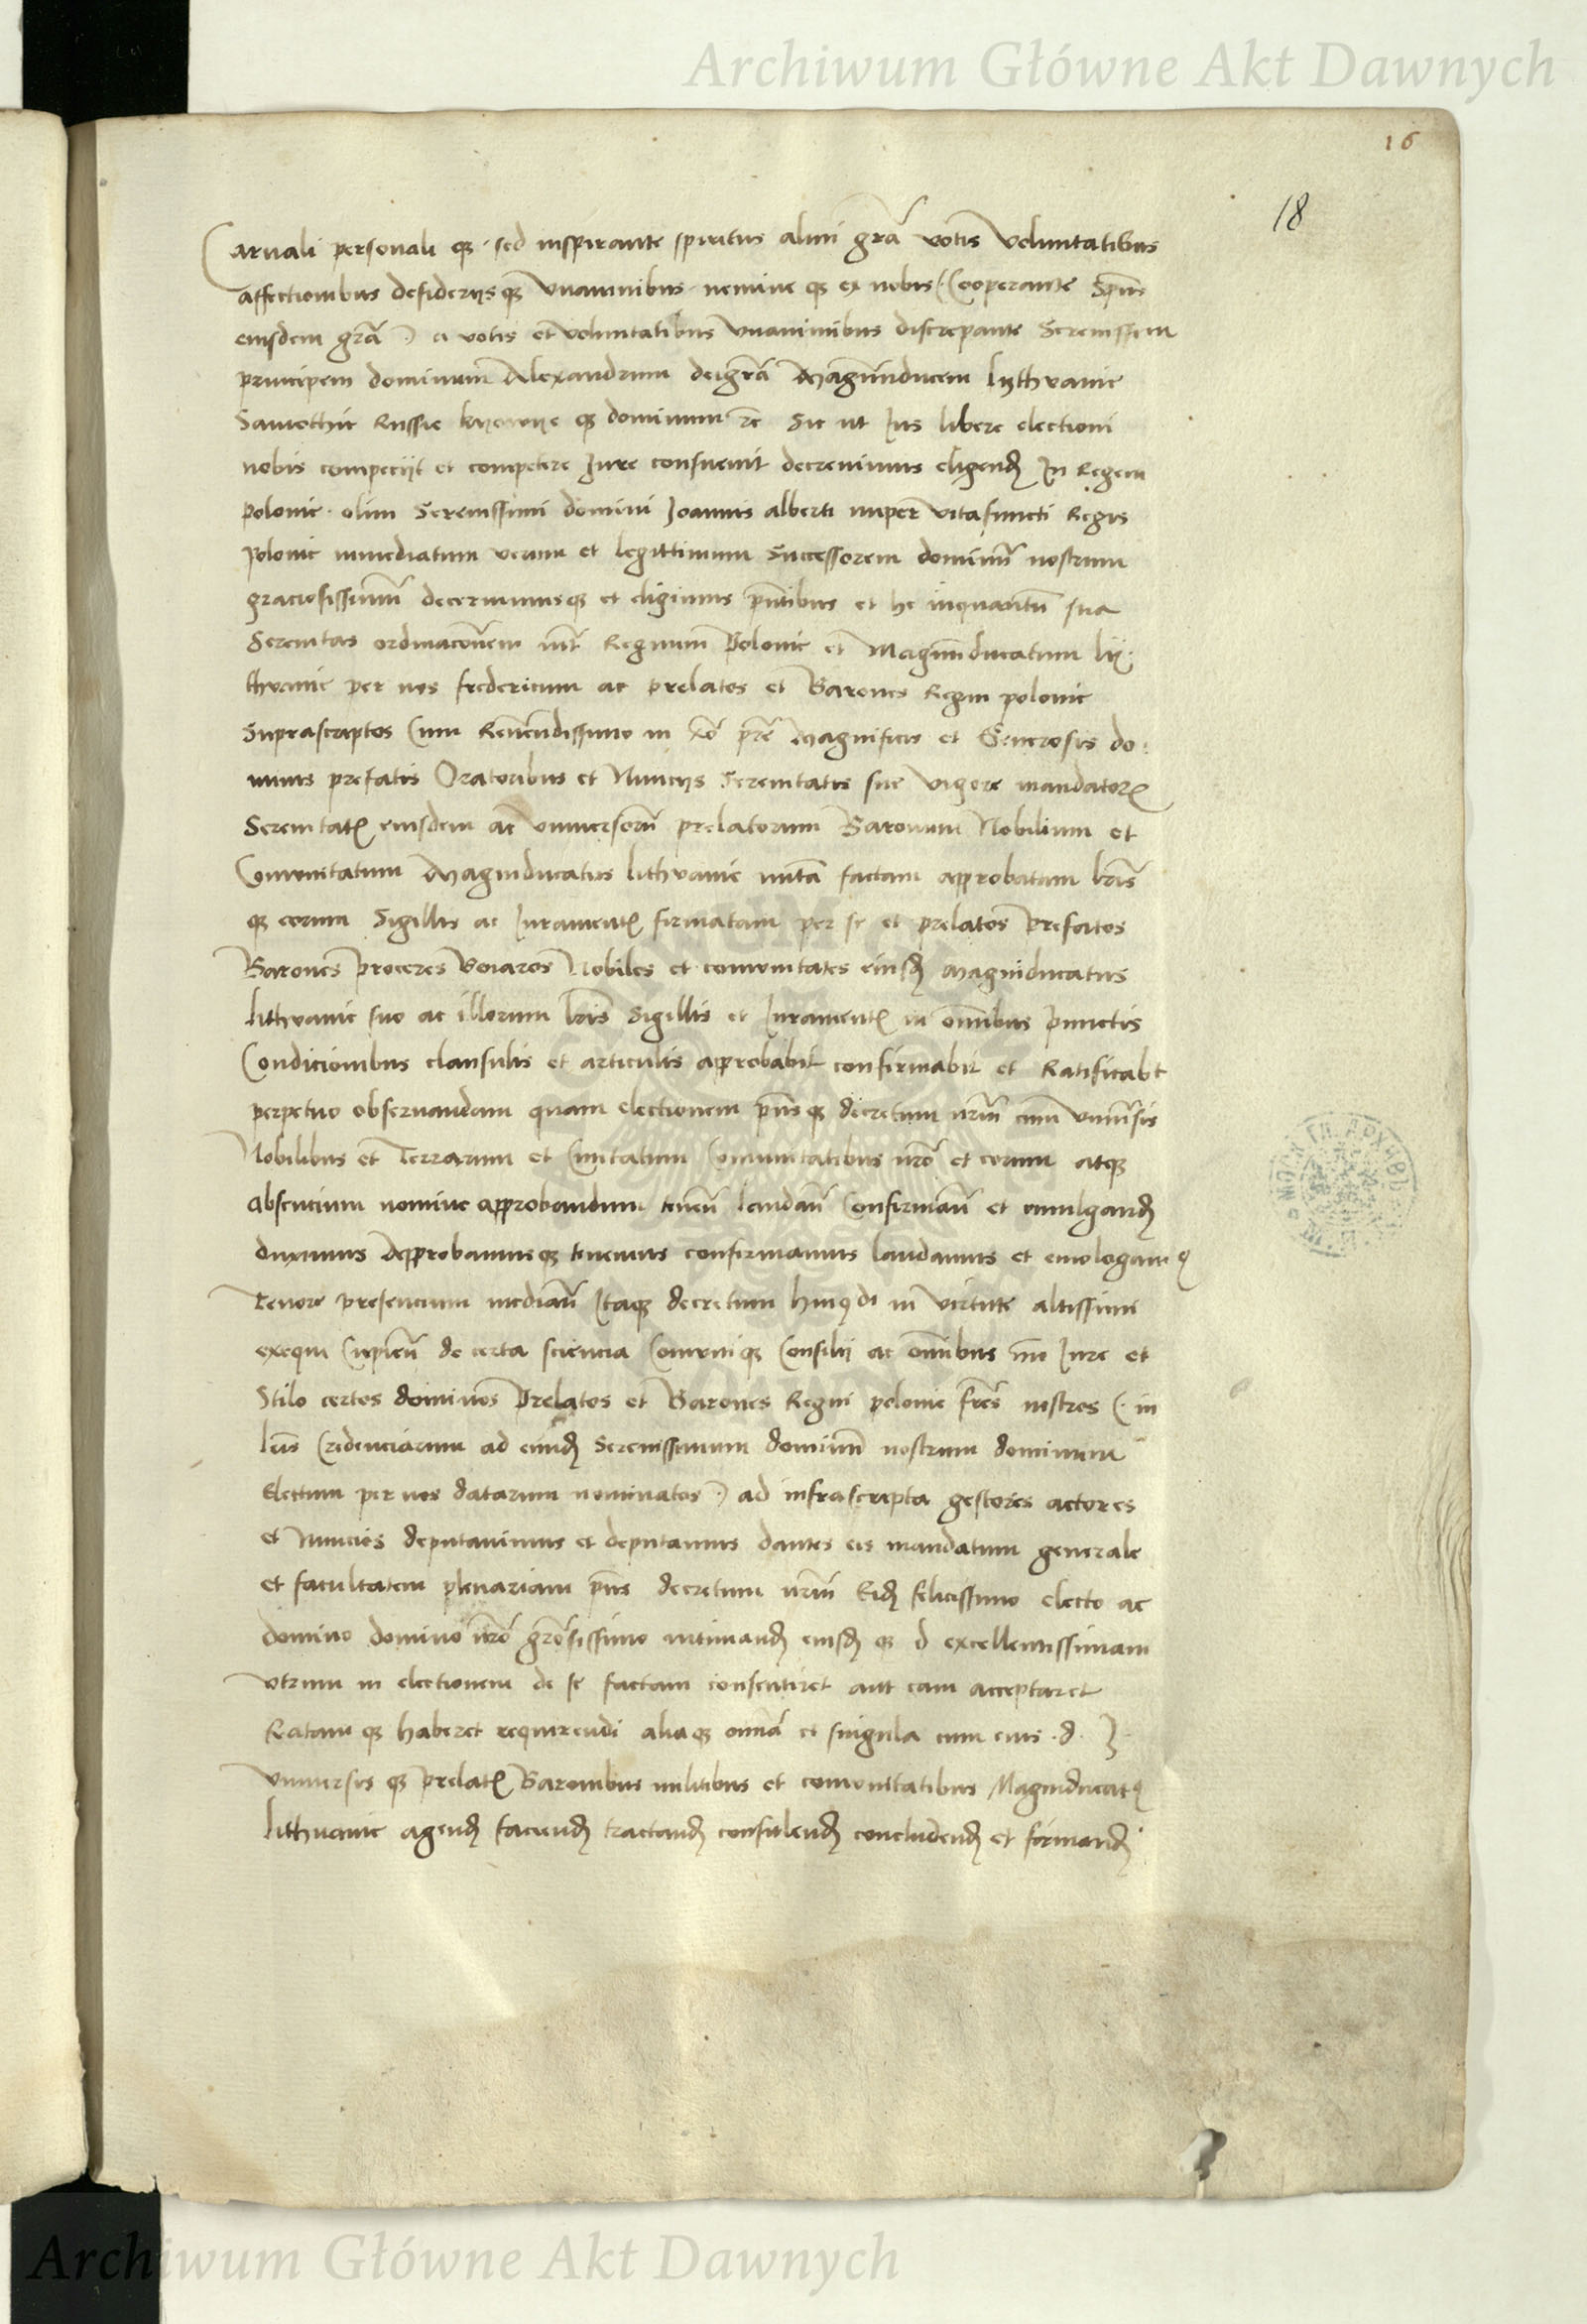 Archiwum Główne Akt Dawnych
16
18
Carnali personali qꝫ · sed inspirante spiritus almi grã votis voluntatibus
affectionibus desiderijsqꝫ vnanimibus · nemine qꝫ ex nobis (· Cooperante Spũs
eiusdem grã ·) a votis et voluntatibus vnanimibus discrepante Serenissimum
principem dominum Alexandrum dei grã Magnũducem lythvanie
Samothie Russie kyeowye qꝫ dominum ꝛc̃ Sic ut Jus libere electioni
nobis competijt et competere Jure consuevit decrevimus eligendꝫ In Regem
polonie · olim Serenissimi domini Joannis alberti nuper vita functi Regis
Polonie immediatum verum et legittimum Successorem dominũ nostrum
graciosissimũ decernimusqꝫ et eligimus pñtibus et he inquantũ sua
Serenitas ordinacõnem int̃ Regnum Polonie et Magnũducatum lij·
thvanie per nos fredericum ac prelatos et Barones Regni polonie
Suprascriptos Cum Reuẽndissimo in xõ pr̃e Magnificis et Generosis do:
minis prefatis Oratoribus et Nuncijs Serenitatis sue vigore mandatorꝫ
Serenitatꝫ eiusdem ac vniversorũ prelatorum Baronum Nobilium et
Comunitatum Magniducatus lithvanie initã factam approbatam lr̃is
qꝫ eorum Sigillis ac Juramentꝫ firmatam per se et prelatos prefatos
Barones proceres Boiaros Nobiles et comunitates eiusdꝫ Magniducatus
lithvanie suo ac illorum lr̃is Sigillis et Juramentꝫ in om̃ibus punctis
Condicionibus clausulis et articulis approbabit confirmabit et Ratificabt
perpetuo observandam quam electionem pñsqꝫ decretum nr̃m cum vniũsis
Nobilibus et Terrarum et Civitatum Comunitatibus nr̃o et eorum atqꝫ
absencium nomine approbandum tenẽn laudañ Confirmañ et emulgandꝫ
duximus Approbamusqꝫ tenemus confirmamus laudamus et emologamꝰ
Tenore presencium mediañ Itaqꝫ decretum hmꝰdi in virtute altissimi
exequi Cupieñ de certa sciencia Comuniqꝫ Consilij ac om̃ibus m̃ Jure et
Stilo certos dominos Prelatos et Barones Regni polonie fr̃es nostros (· in
lr̃is Credenciarum ad eundꝫ Serenissimum dominũ nostrum dominum
Electum per nos datarum nominatos ·) ad infrascripta gestores actores
et Nuncios deputavimus et deputamus dantes eis mandatum generale
et facultatem plenariam pñs decretum nr̃m Eidꝫ felicissimo electo ac
domino domino nr̃o gr̃osissimo intimandꝫ eiusdꝫ qꝫ d excellentissimam
vtrum in electionem de se factam consentiret aut eam acceptaret
Ratam qꝫ haberet requirendi aliaqꝫ om̃ia et singula cum eius · d · J
vniuersis qꝫ prelatꝫ Baronibus militibus et comunitatibus Magniducatꝰ
lithuanie agendꝫ faciendꝫ tractandꝫ consulendꝫ concludendꝫ et firmandꝫ
Archiwum Główne Akt Dawnych